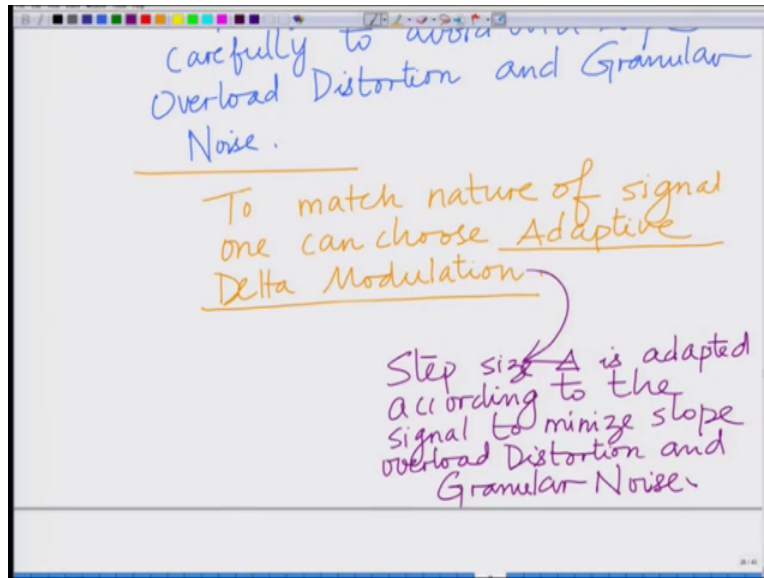 carefully to avoid
Overload Distortion and Granular
Noise.
To match nature of signal
one can choose Adaptive
Delta Modulation.
Step size Δ is adapted
according to the
signal to minize slope
overload Distortion and
Granular Noise.